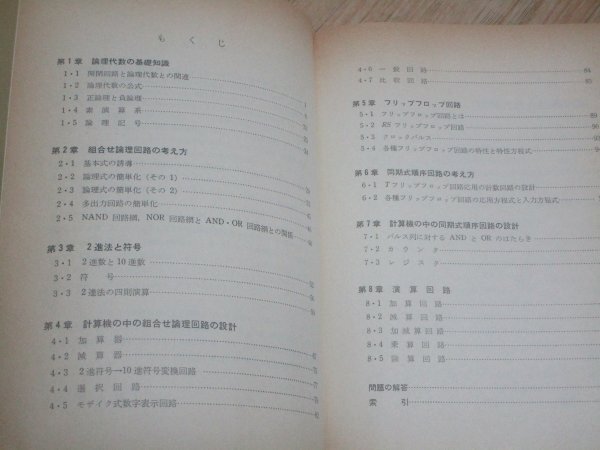 もくじ
第1章 論理代数の基礎知識
1・1 開閉回路と論理代数との関連
1・2 論理代数の公式 1
1・3 正論理と負論理
1・4 素演算系
1・5 論理記号
第2章 組合せ論理回路の考え方
2・1 基本式の誘導
2・2 論理式の簡単化(その1)
2・3 論理式の簡単化(その2)
2・4 多出力回路の簡単化
2・5 NAND回路網,NOR回路網とAND・OR回路網との関係
第3章 2進法と符号
3・1 2進数と10進数
3・2 符号
3・3 2進法の四則演算
第4章 計算機の中の組合せ論理回路の設計
4・1 加算器
4・2 減算器
4・3 2進符号→10進符号変換回路
4・4 選択回路 77
4・5 モザイク式数字表示回路 82
4・6 一致回路 84
4・7 比較回路
第5章 フリップフロップ回路
5・1 フリップフロップ回路とは 89
5・2 RSフリップフロップ回路 90
5・3 クロックパルス
5・4 各種フリップフロップ回路の特性と特性方程式
第6章 同期式順序回路の考え方
6・1 Tフリップフロップ回路応用の計数回路の設計
6・2 各種フリップフロップ回路の応用方程式と入力方程式
第7章 計算機の中の同期式順序回路の設計
7・1 パルス列に対するANDとORのはたらき
7・2 カウンタ
7・3 レジスタ
第8章 演算回路
8・1 加算回路
8・2 減算回路
8・3 加減算回路
8・4 乗算回路
8・5 除算回路
問題の解答
索引